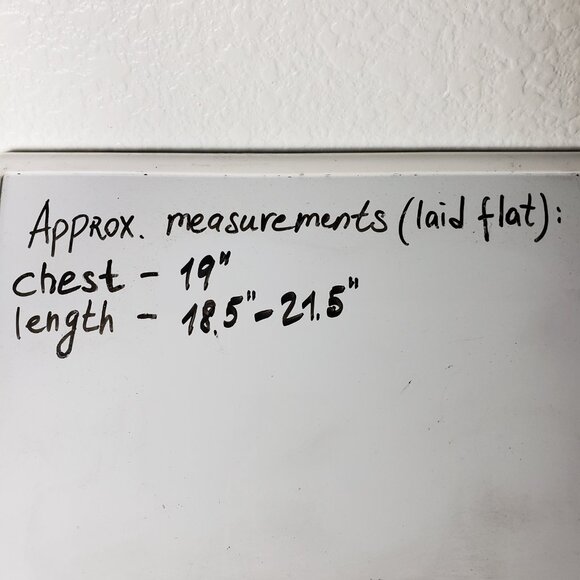 Approx. measurements (laid flat):
chest - 19"
length - 18.5"-21.5"